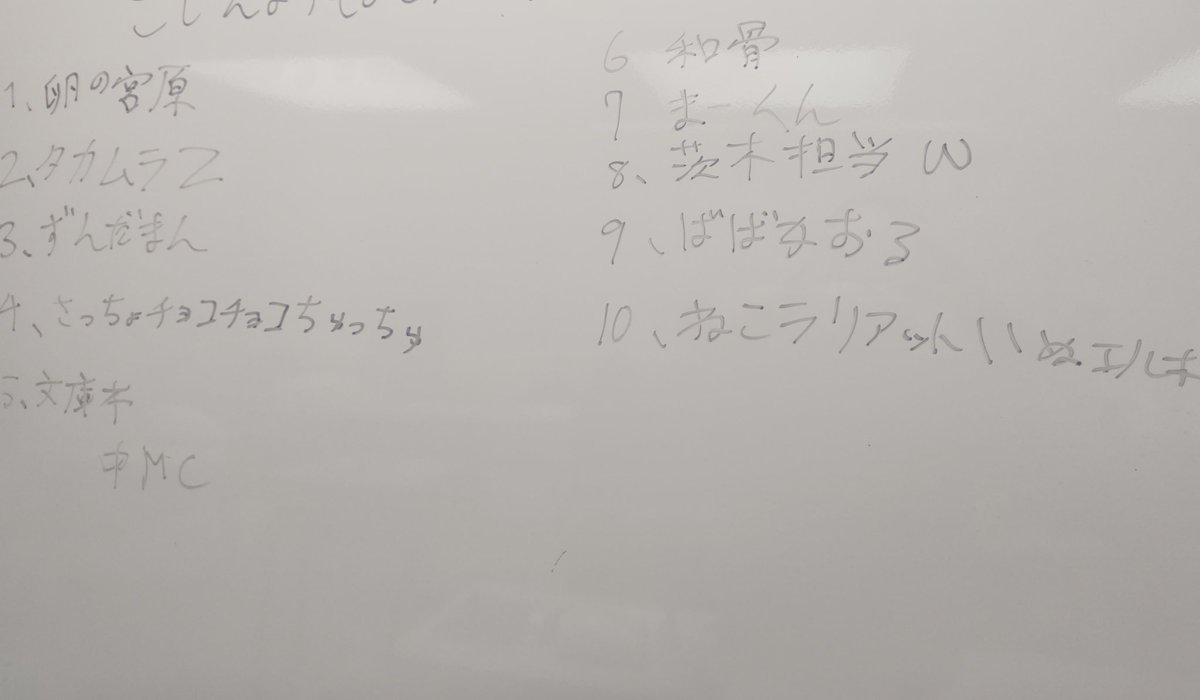 1、卵の宮原
2、タカムラZ
3、ずんだまん
4、さっちょチョコチョコちゅっちゅ
5、文庫本
中MC
6 和骨
7 まーくん
8、茨木担当W
9、ばばなおる
10、ねこラリアットいぬエルボ